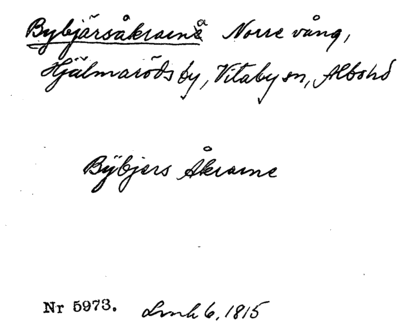 Bybjärsåkrarna Norre vång,
Hjälmaröds by, Vitaby sn, Albo hd
Bÿbjers Åkrarne
Nr 5973. Lmh 6, 1815